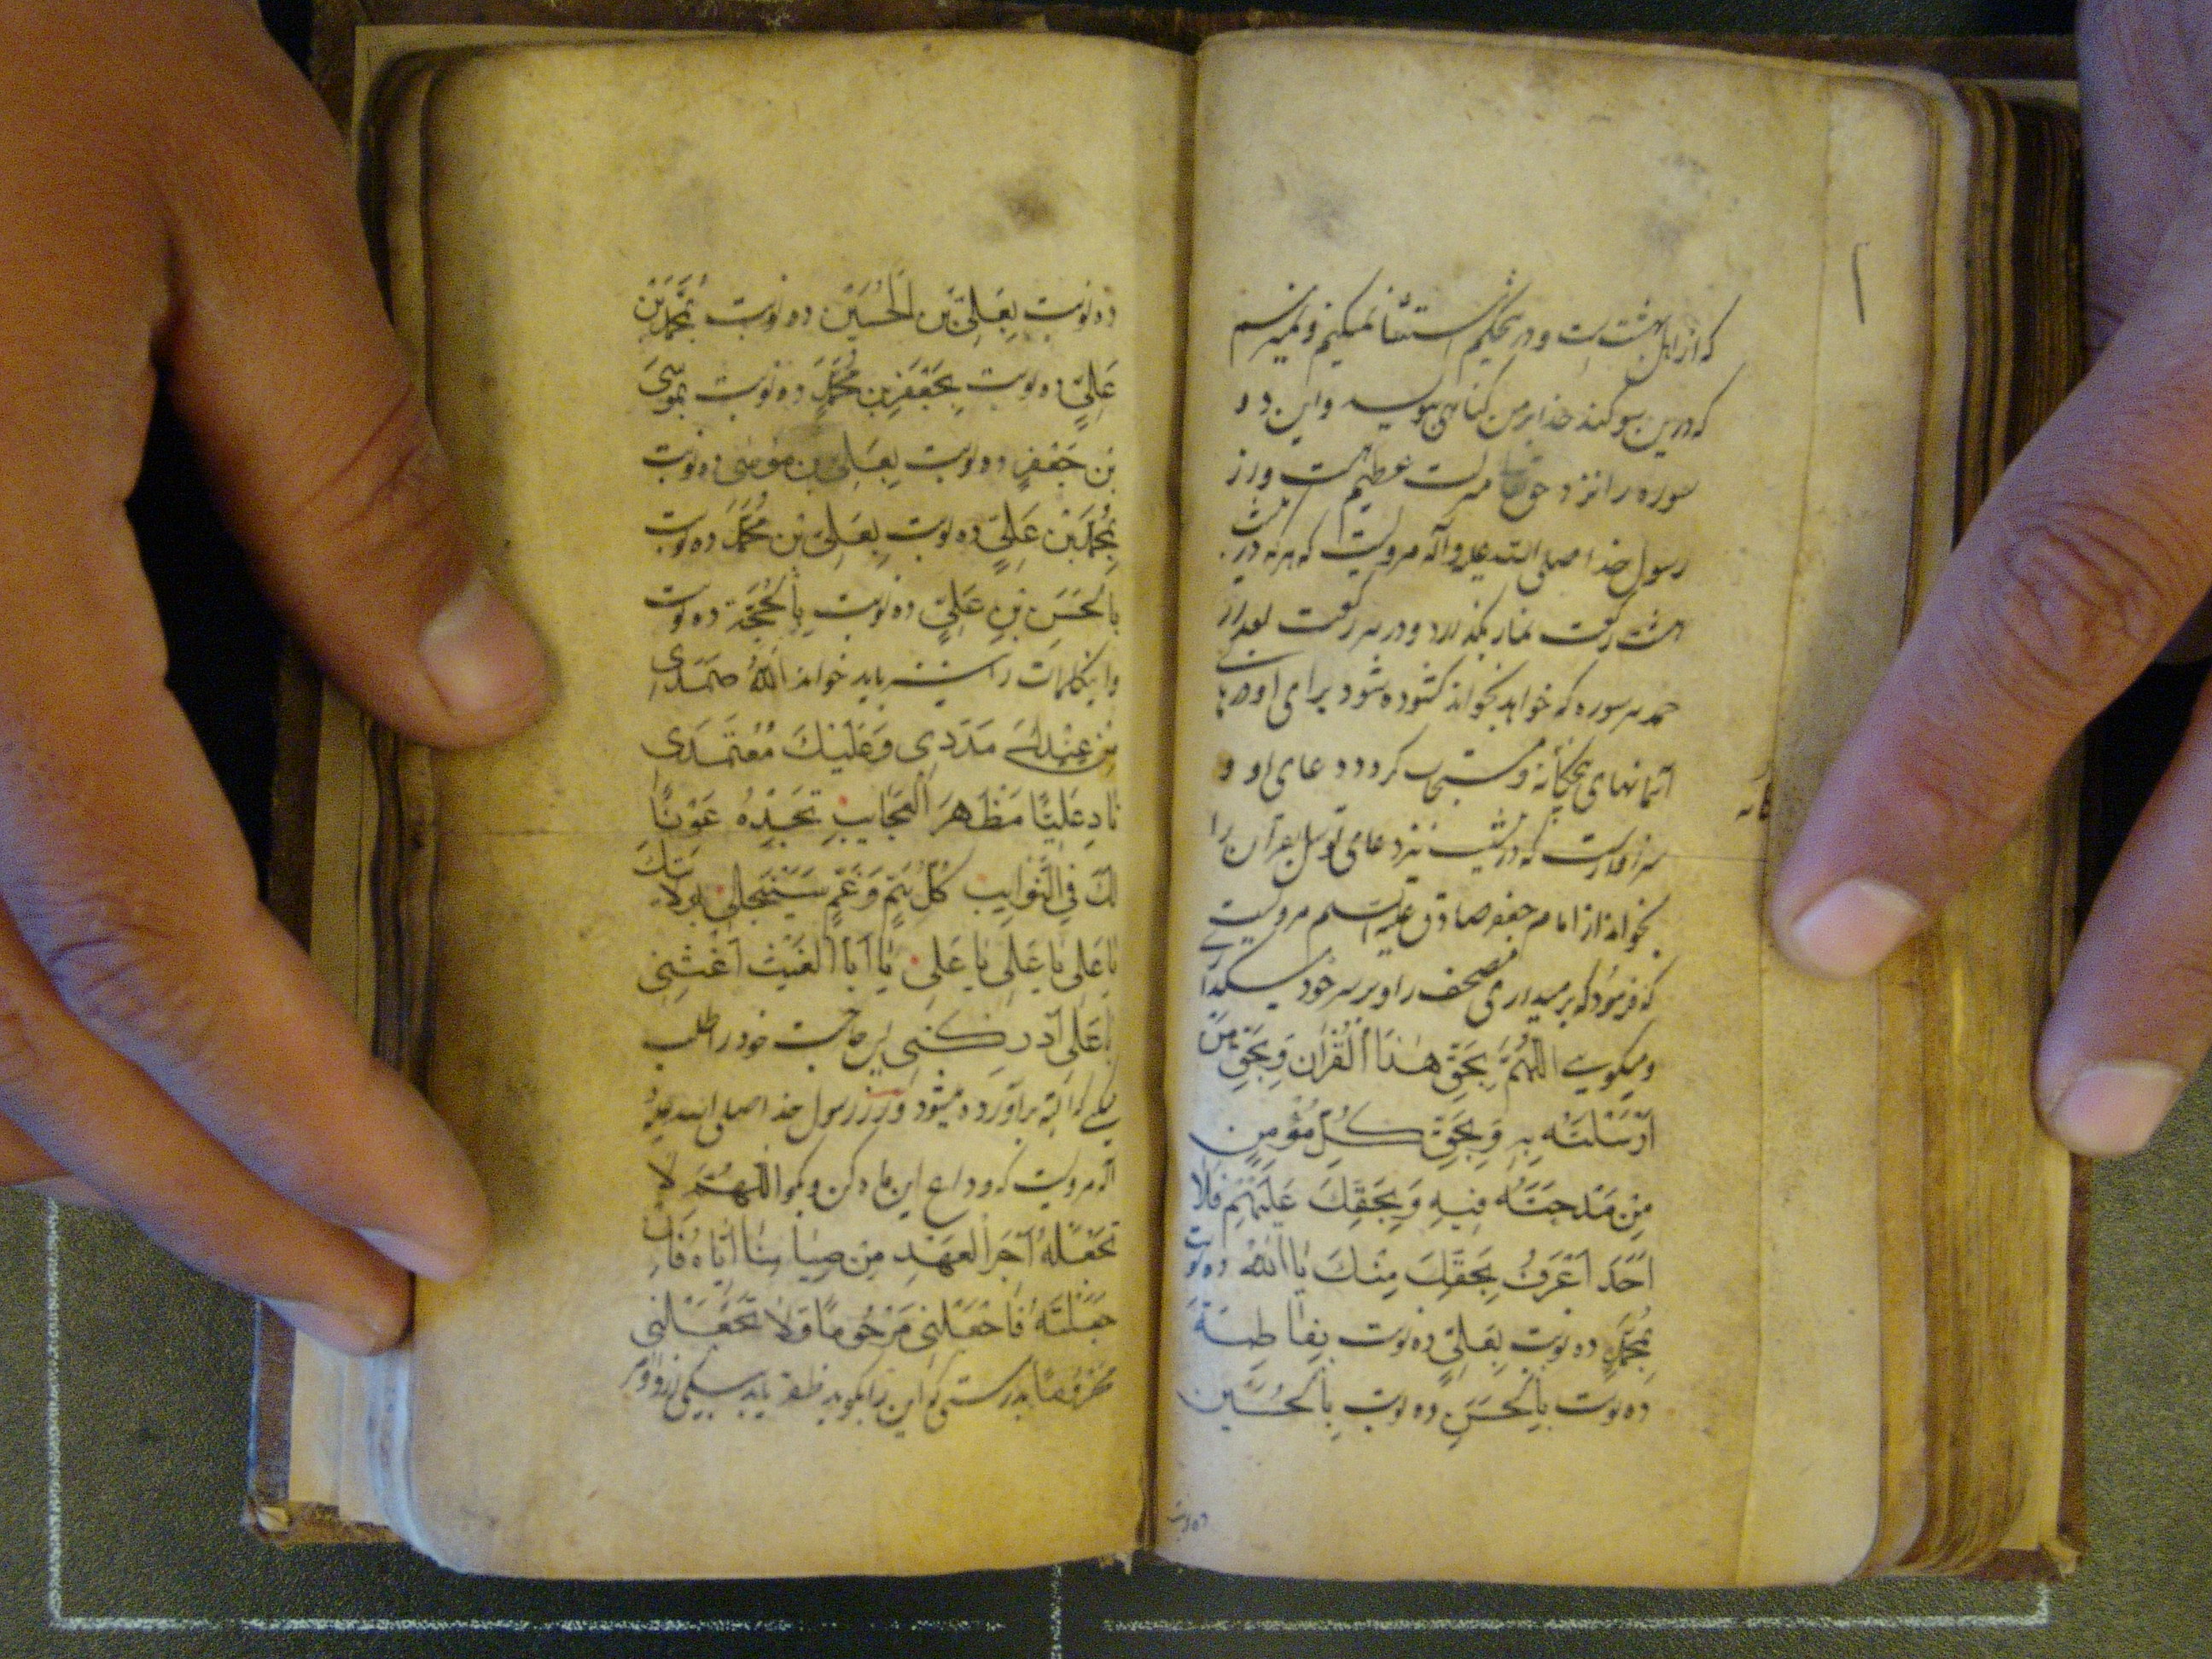 که از اهل بهشت است و درین حکم استثنا نمیکنم و نمیترسم
که درین سوکند خدا بر من کناهی بنویسد و این دو
سوره را نزد حقتعالی منزلت عظیم است و از
رسول خدا صلی الله علیه وآله مرویست که هر که درین شب
هشت رکعت نماز بگذارد و در هر رکعت بعد از
حمد هر سوره که خواهد بخواند کشوده شود برای او درهای
آسمانهای و مستجاب کردد دعای او و
سزاوارست که درین شب نیز دعای توسل بقرآن را
بخواند از امام جعفر صادق علیه السلم مرویست
که فرمود که برمیداری مصحف را و بر سر خود میگذاری
و میکویی اللَّهُمَّ بِحَقِّ هٰذَا الْقُرْآنِ وَبِحَقِّ مَنْ
اَرْسَلْتَهُ بِهِ وَبِحَقِّ كُلِّ مُؤْمِنٍ
مَدَحْتَهُ فِيهِ وَبِحَقِّكَ عَلَيْهِمْ فَلَا
اَحَدَ اَعْرَفُ بِحَقِّكَ مِنْكَ يَا اَللهُ ده نوبت
بِمُحَمَّدٍ ده نوبت بِعَلِيٍّ ده نوبت بِفَاطِمَةَ
ده نوبت بِالْحَسَنِ ده نوبت بِالْحُسَيْنِ
ده نوبت
ده نوبت بِعَلِيِّ بْنِ الْحُسَيْنِ ده نوبت بِمُحَمَّدِ بْنِ
عَلِيٍّ ده نوبت بِجَعْفَرِ بْنِ مُحَمَّدٍ ده نوبت بِمُوسَى
بْنِ جَعْفَرٍ ده نوبت بِعَلِيِّ بْنِ مُوسٰى ده نوبت
بِمُحَمَّدِ بْنِ عَلِيٍّ ده نوبت بِعَلِيِّ بْنِ مُحَمَّدٍ ده نوبت
بِالْحَسَنِ بْنِ عَلِيٍّ ده نوبت بِالْحُجَّةِ ده نوبت
و اینکلمات را نیز باید خواند اَللهُ صَمَدِي
مِنْ عِنْدِكَ مَدَدِي وَعَلَيْكَ مُعْتَمَدِي
نَادِ عَلِيًّا مَظْهَرَ الْعَجَايِبِ تَجِدْهُ عَوْنًا
لَكَ فِي النَّوَايِبِ كُلُّ هَمٍّ وَغَمٍّ سَيَنْجَلِي بِوِلَايَتِكَ
يَا عَلِي يَا عَلِي يَا عَلِي يَا اَبَا الْغَيْثِ اَغِثْنِي
يَا عَلِي اَدْرِكْنِي پس حاجت خود را طلب
که البته برآورده میشود و از رسول خدا صلی الله علیه و
آله مرویست که وداع این ماه کن و بگو اللَّهُمَّ لَا
تَجْعَلْهُ آخِرَ الْعَهْدِ مِنْ صِيَامِنَا اِيَّاهُ فَاِنْ
جَعَلْتَهُ فَاجْعَلْنِي مَرْحُومًا وَلَا تَجْعَلْنِي
مَحْرُومًا بدرستی که این را بکوید ظفر یابد بیکی از دو امر